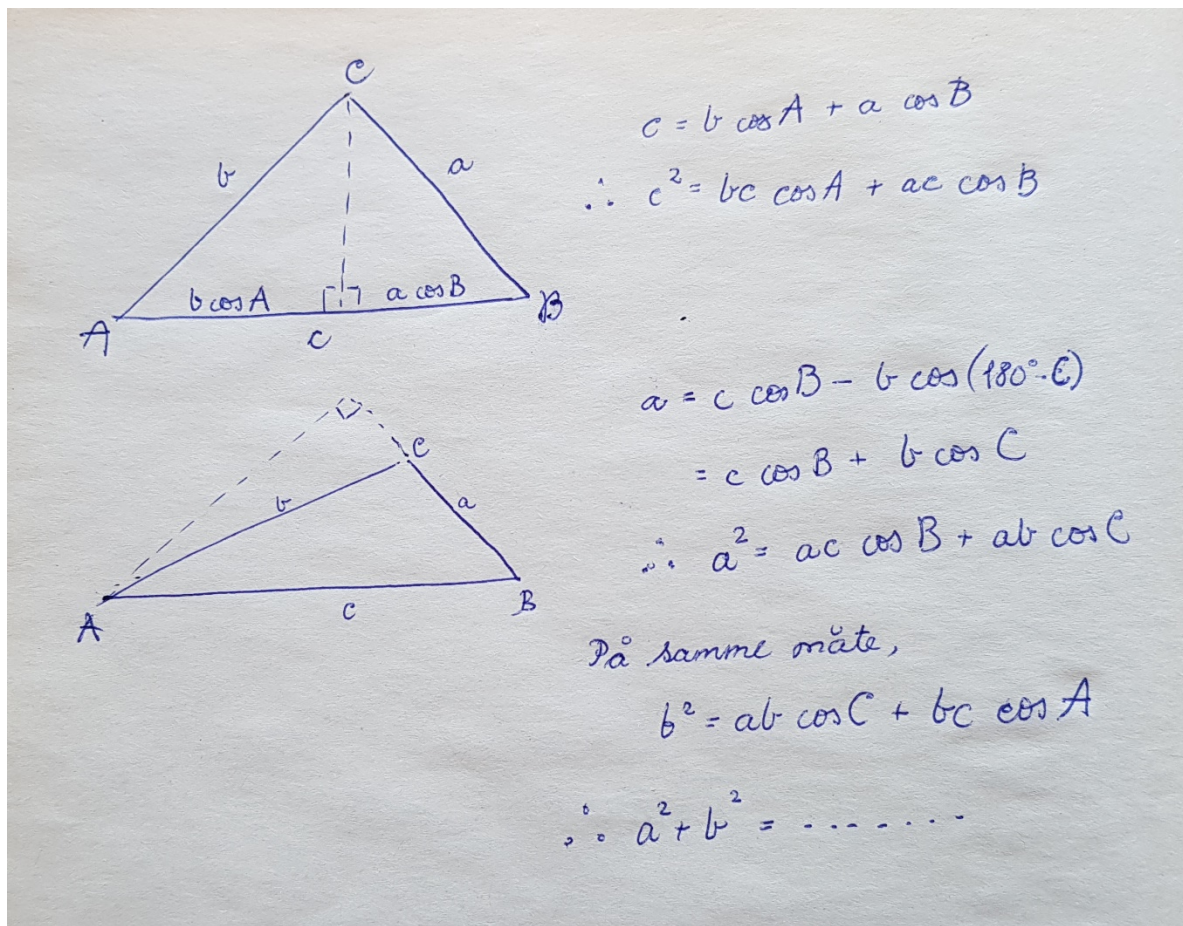 C
b
a
b cos A
a cos B
A
c
B
c = b cos A + a cos B
∴ c² = bc cos A + ac cos B
C
b
a
A
c
B
a = c cos B − b cos (180°-C)
= c cos B + b cos C
∴ a² = ac cos B + ab cos C
På samme måte,
b² = ab cos C + bc cos A
∴ a² + b² = ........